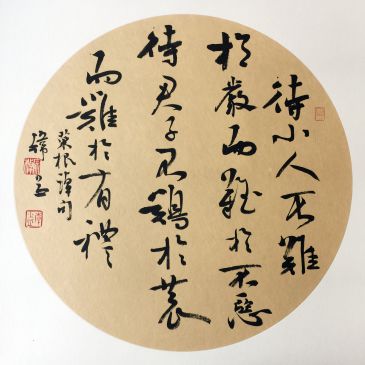 待小人不難
於嚴而難於不惡
待君子不難於恭
而難於有禮
菜根譚句